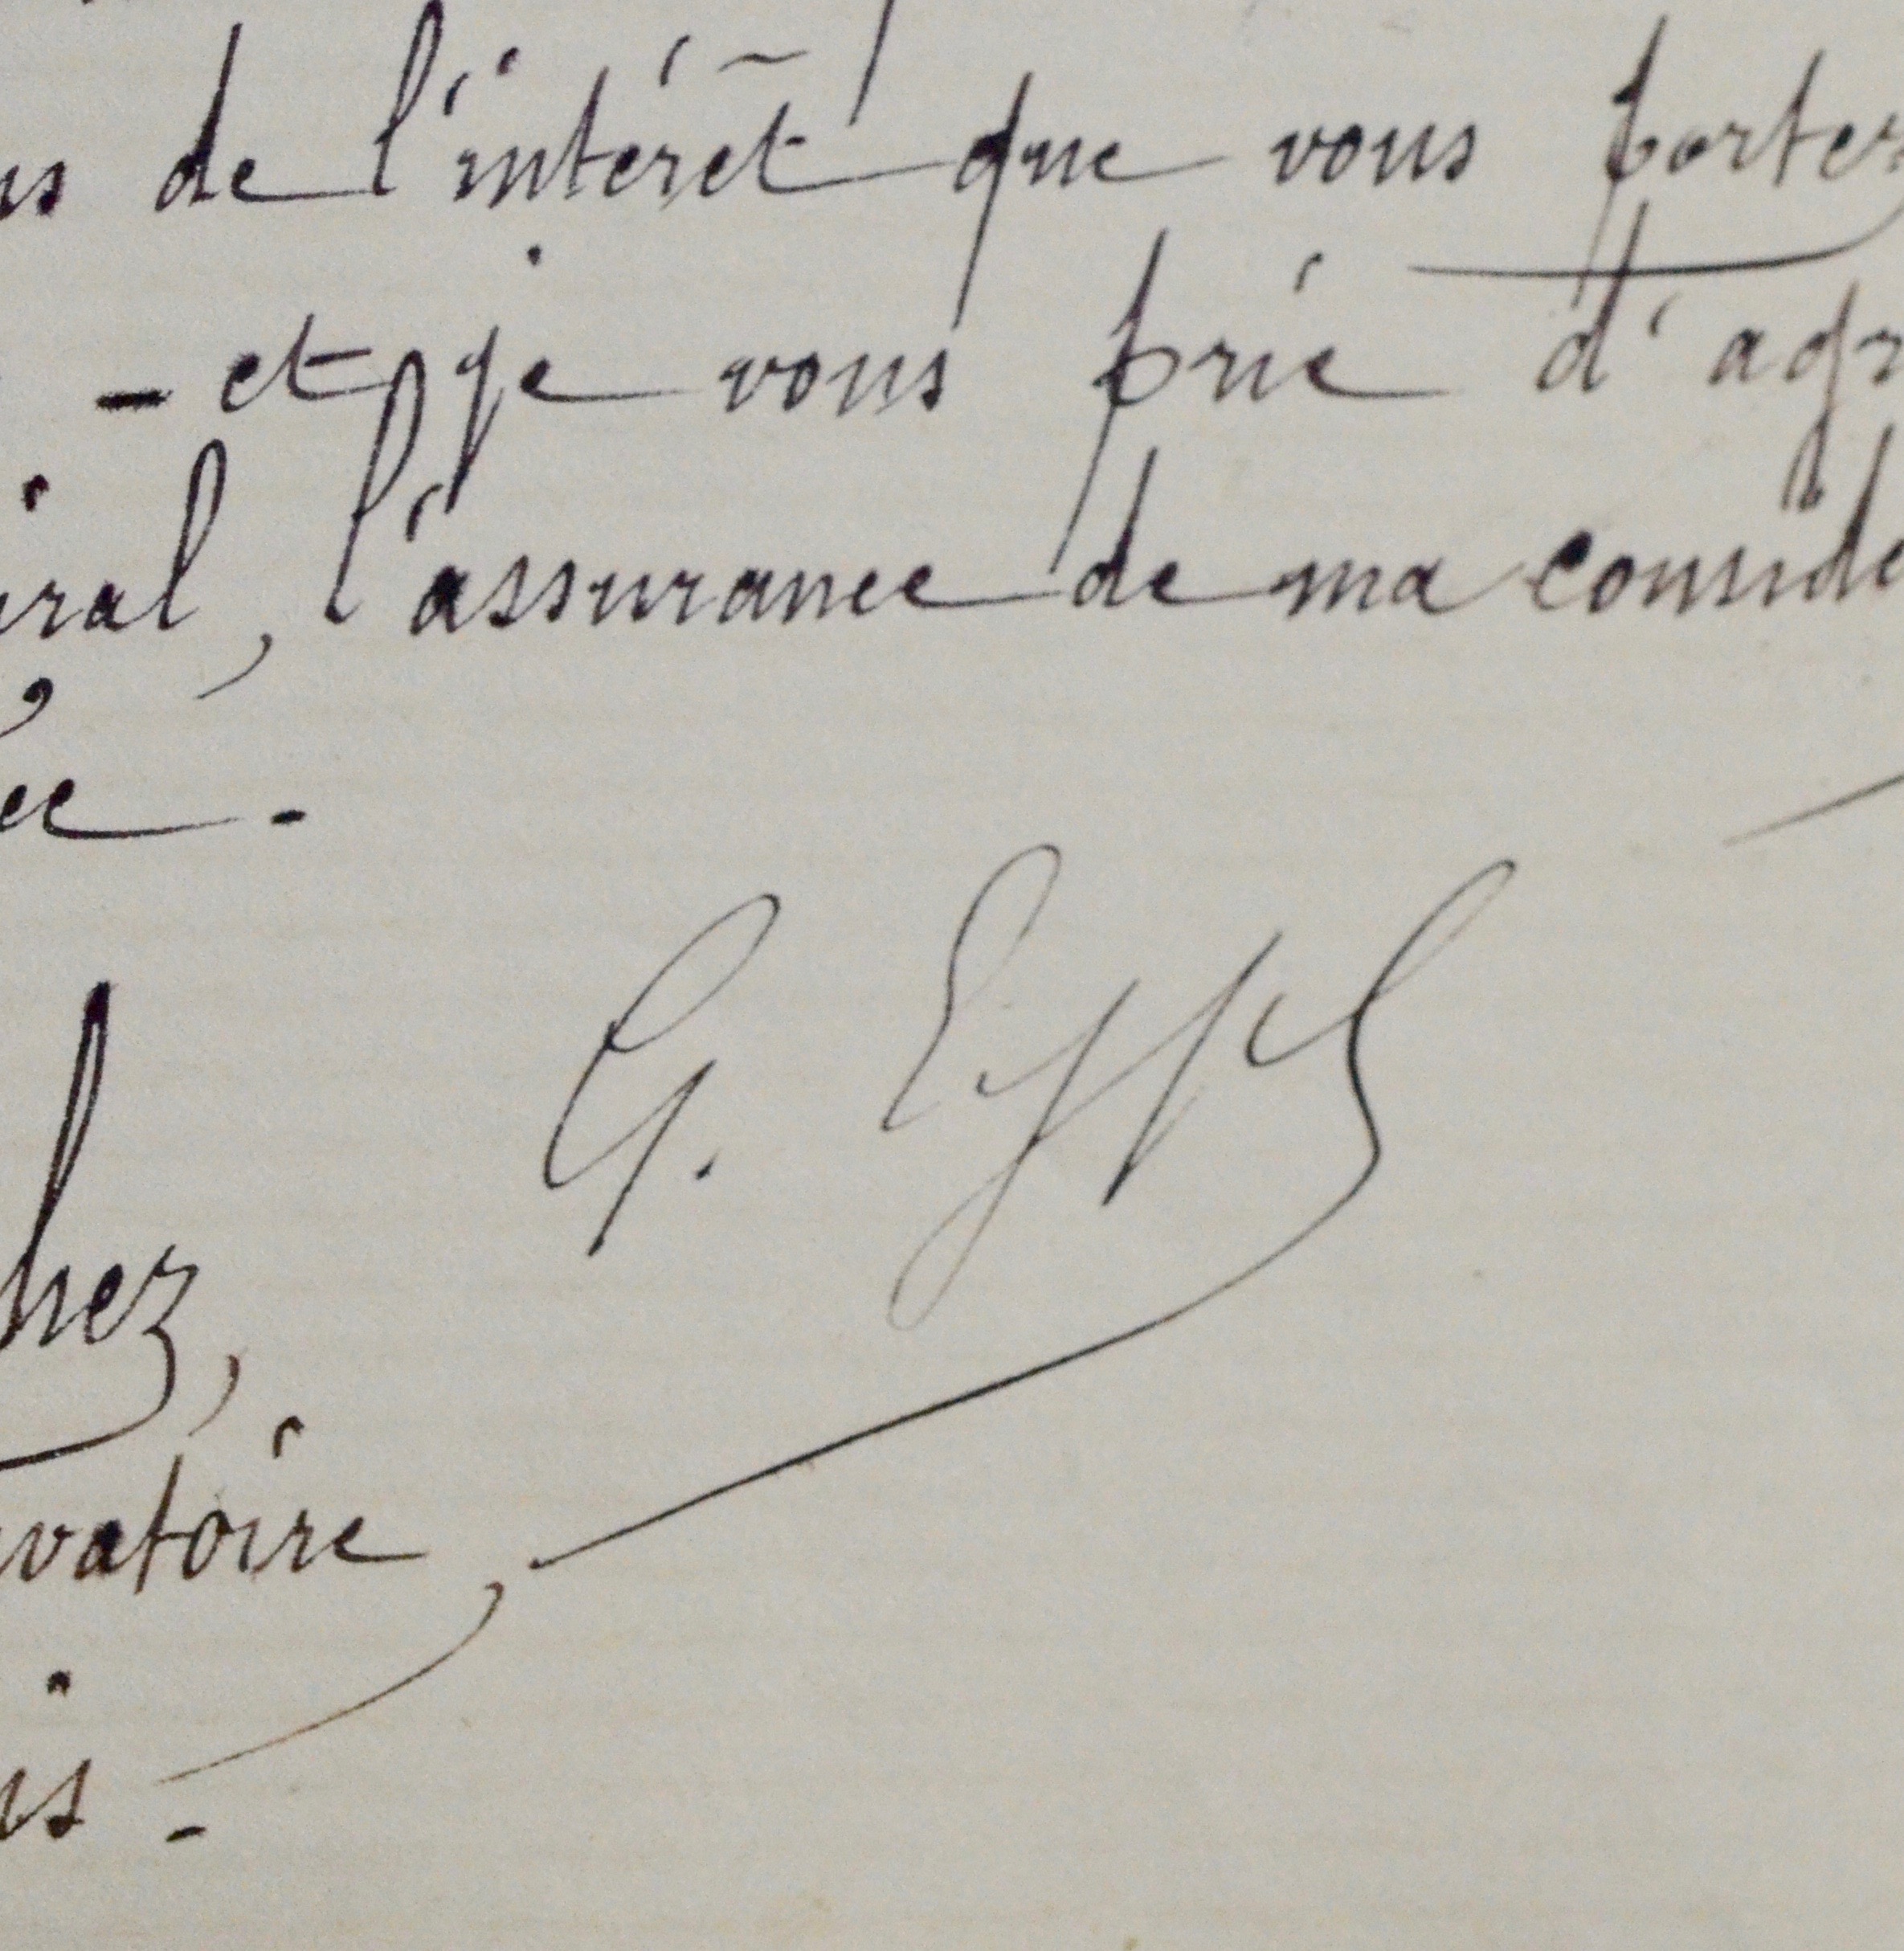 us de l'intérêt que vous portez
- et je vous prie d'agr
iral, l'assurance de ma considé
ée.
G. Eiffel
hez,
rvatoire,
is -